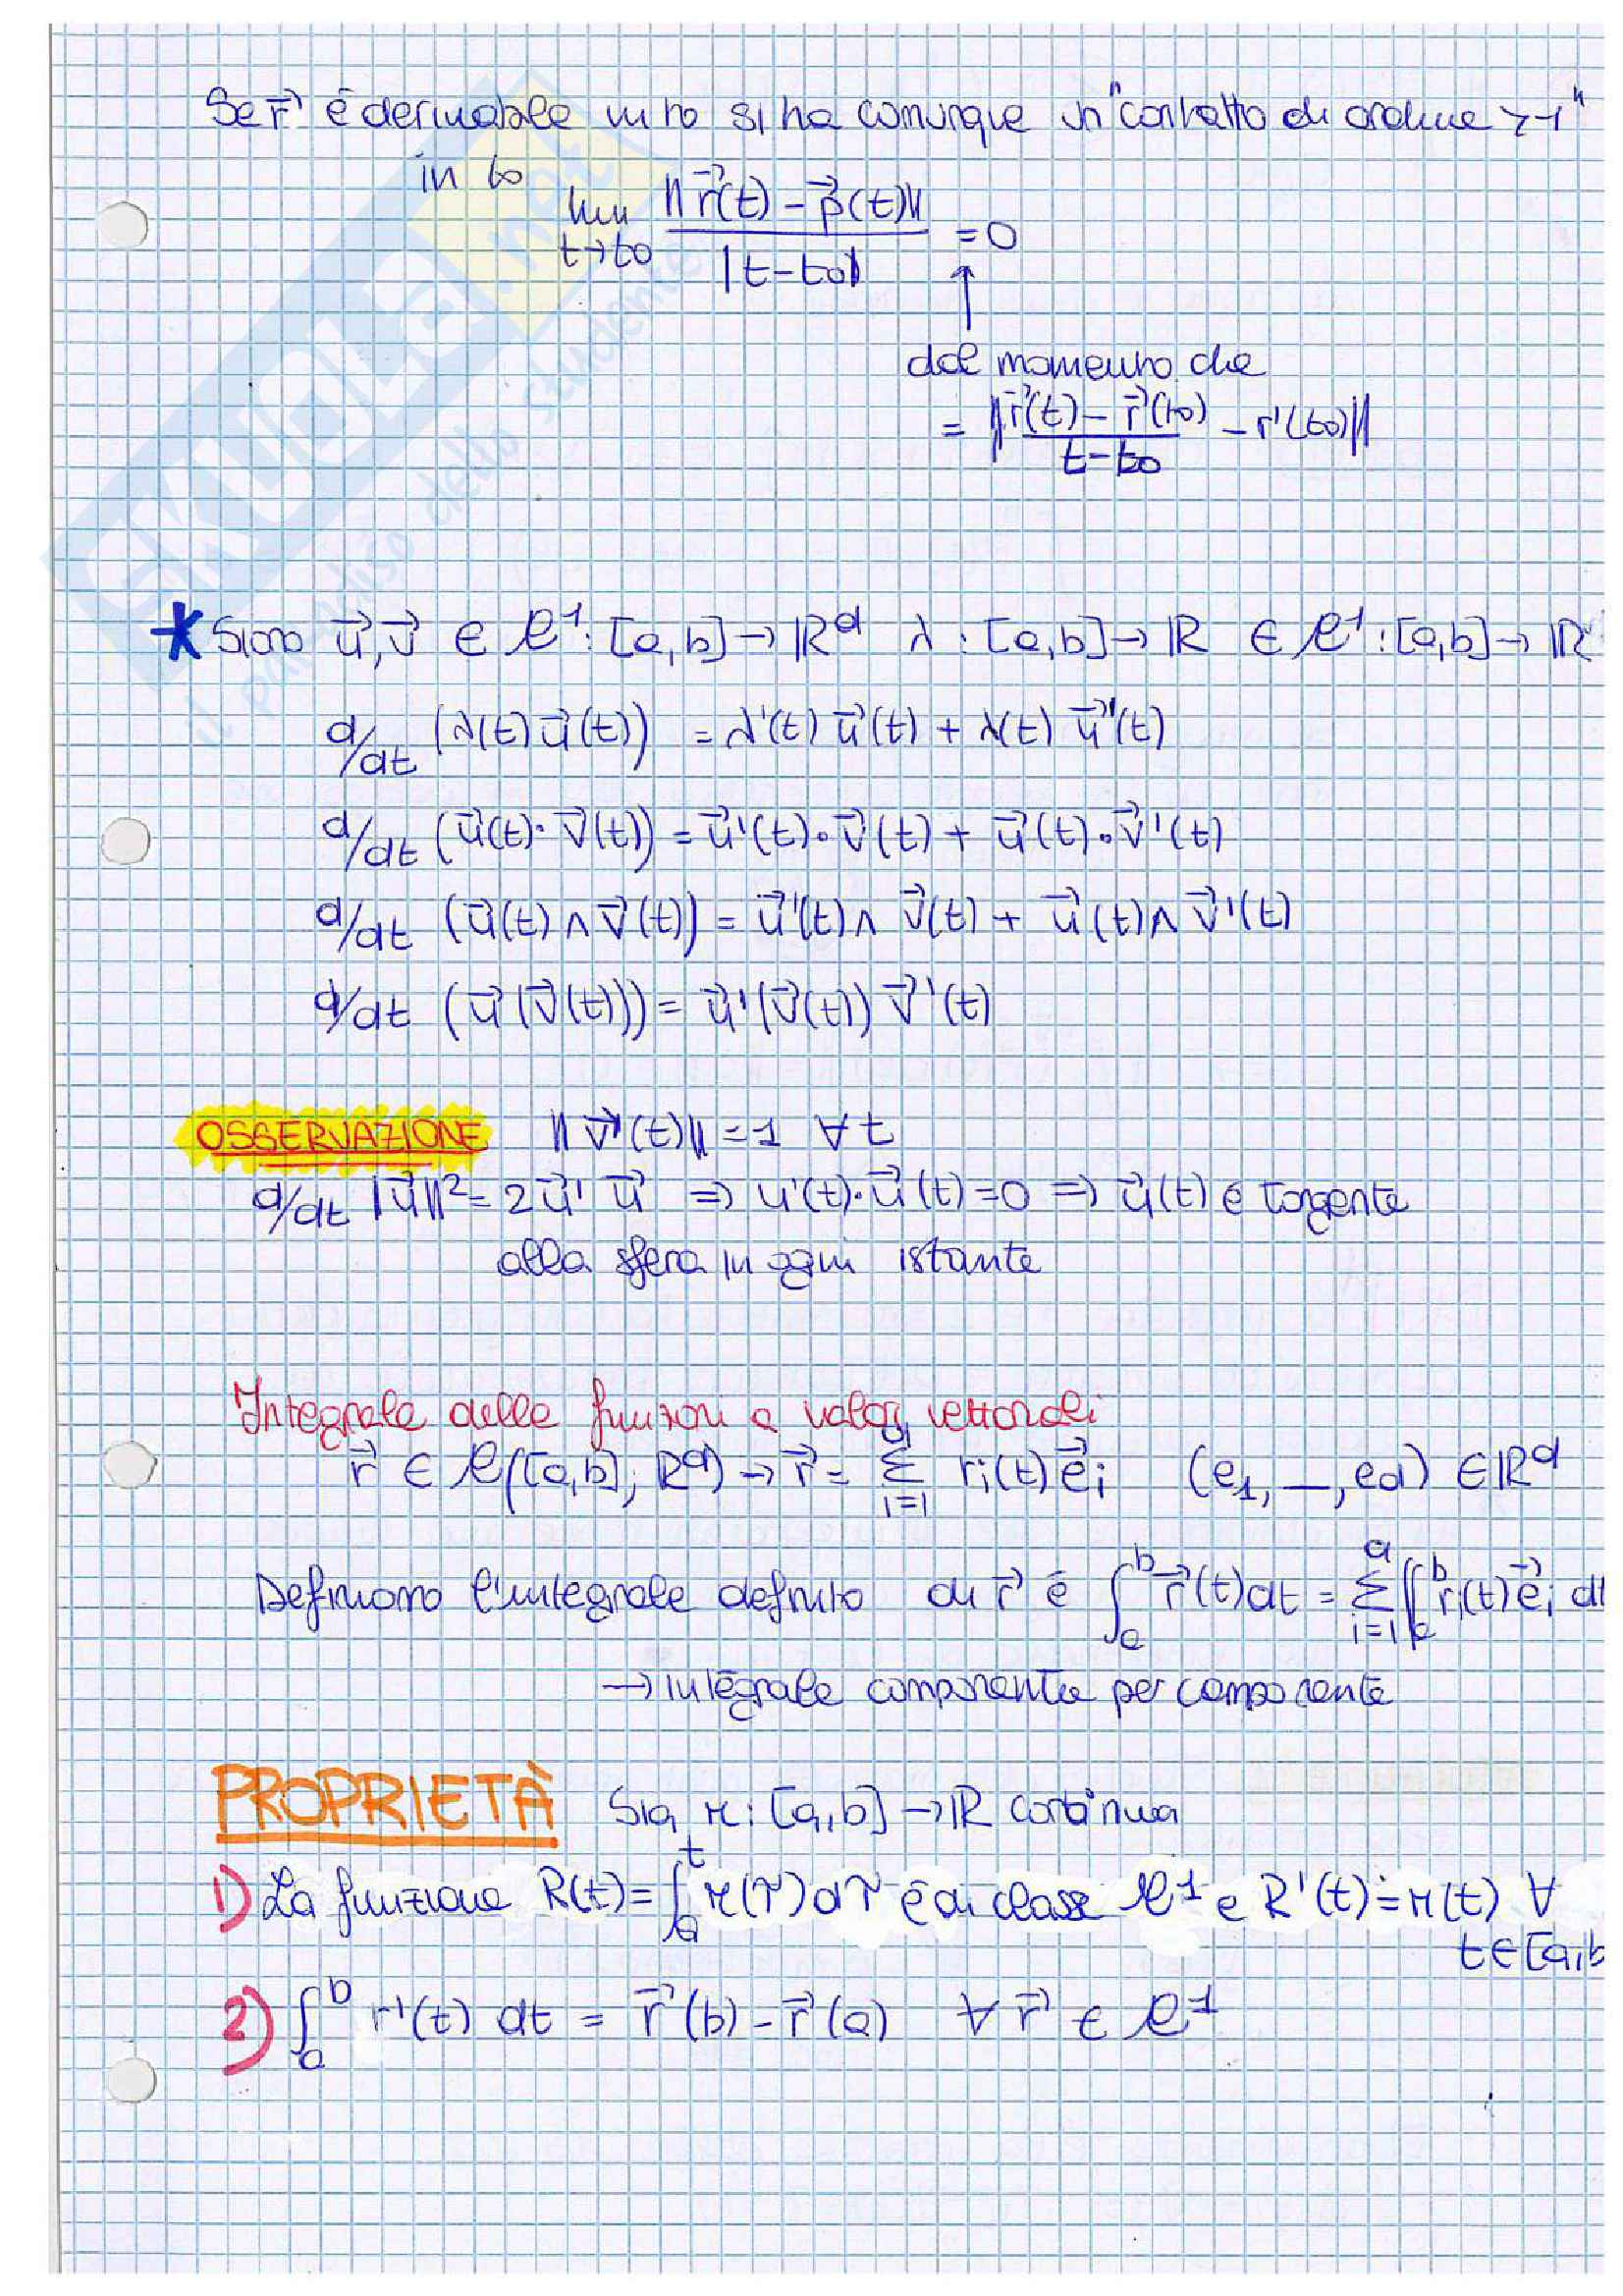 Se r⃗ é derivabile in to si ha comunque un "contatto di ordine >1"
in to
lim t→to ‖r⃗(t) - p⃗(t)‖ / |t-to| = 0
↑
dal momento che
= ‖ (r⃗(t) - r⃗(to)) / (t-to) - r'(to) ‖
* Siano u⃗, v⃗ ∈ C¹: [a,b] → ℝᵈ λ: [a,b] → ℝ ∈ C¹: [a,b] → ℝ
d/dt (λ(t) u⃗(t)) = λ'(t) u⃗(t) + λ(t) u⃗'(t)
d/dt (u⃗(t) · v⃗(t)) = u⃗'(t) · v⃗(t) + u⃗(t) · v⃗'(t)
d/dt (u⃗(t) ∧ v⃗(t)) = u⃗'(t) ∧ v⃗(t) + u⃗(t) ∧ v⃗'(t)
d/dt (u⃗(v⃗(t))) = u⃗'(v⃗(t)) v⃗'(t)
OSSERVAZIONE ‖v⃗(t)‖ = 1 ∀t
d/dt |u⃗‖² = 2u⃗' u⃗ ⇒ u'(t)·u⃗(t) = 0 ⇒ u⃗(t) é tangente
alla sfera in ogni istante
Integrale delle funzioni a valori vettoriali
r⃗ ∈ C([a,b]; ℝᵈ) → r⃗ = Σ_{i=1}^{d} ri(t) e⃗i (e1, _, ed) ∈ ℝᵈ
Definiamo l'integrale definito di r⃗ é ∫_a^b r⃗(t)dt = Σ_{i=1}^{d} ∫_a^b ri(t) e⃗i dt
→ integrale componente per componente
PROPRIETÀ Sia r: [a,b] → ℝ continua
1) La funzione R(t) = ∫_a^t r(τ)dτ é di classe C¹ e R'(t) = r(t) ∀
t ∈ [a,b
2) ∫_a^b r'(t) dt = r⃗(b) - r⃗(a) ∀ r⃗ ∈ C¹
skuola.net
il paradiso dello studente